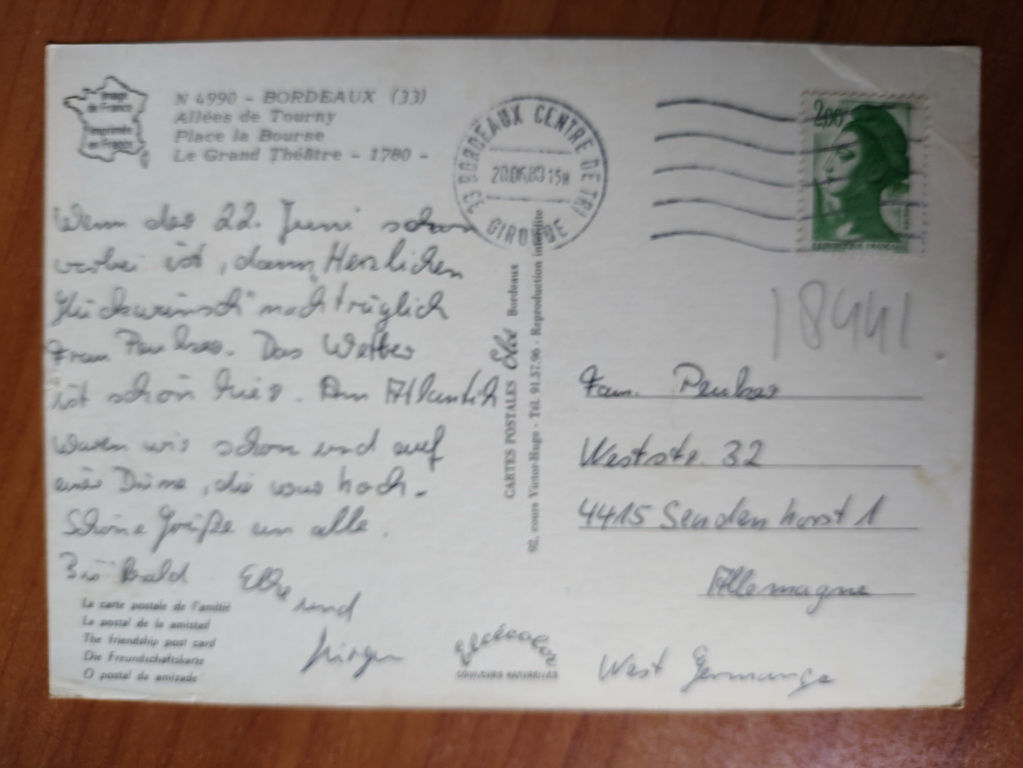 Image
de France
Imprimée
en France
N 4990 - BORDEAUX (33)
Allées de Tourny
Place la Bourse
Le Grand Théâtre - 1780 -
33 BORDEAUX CENTRE DE TRI
15H
GIRONDE
2,00
Wenn der 22. Juni schon
vorbei ist, dann Herzlichen
Glückwunsch nachträglich
Frau Peuker. Das Wetter
ist schön hier. Am Atlantik
waren wir schon und auf
einer Düne, die war hoch.
Schöne Grüße an alle.
Bis Bald Elke und
Jürgen
La carte postale de l'amitié
La postal de la amistad
The friendship post card
Die Freundschaftskarte
O postal de amizade
CARTES POSTALES Elcé Bordeaux
92, cours Victor-Hugo - Tél. 91.57.96 - Reproduction interdite
Elcécolor
COULEURS NATURELLES
18441
Fam. Peuker
Weststr. 32
4415 Sendenhorst 1
Allemagne
West Germange